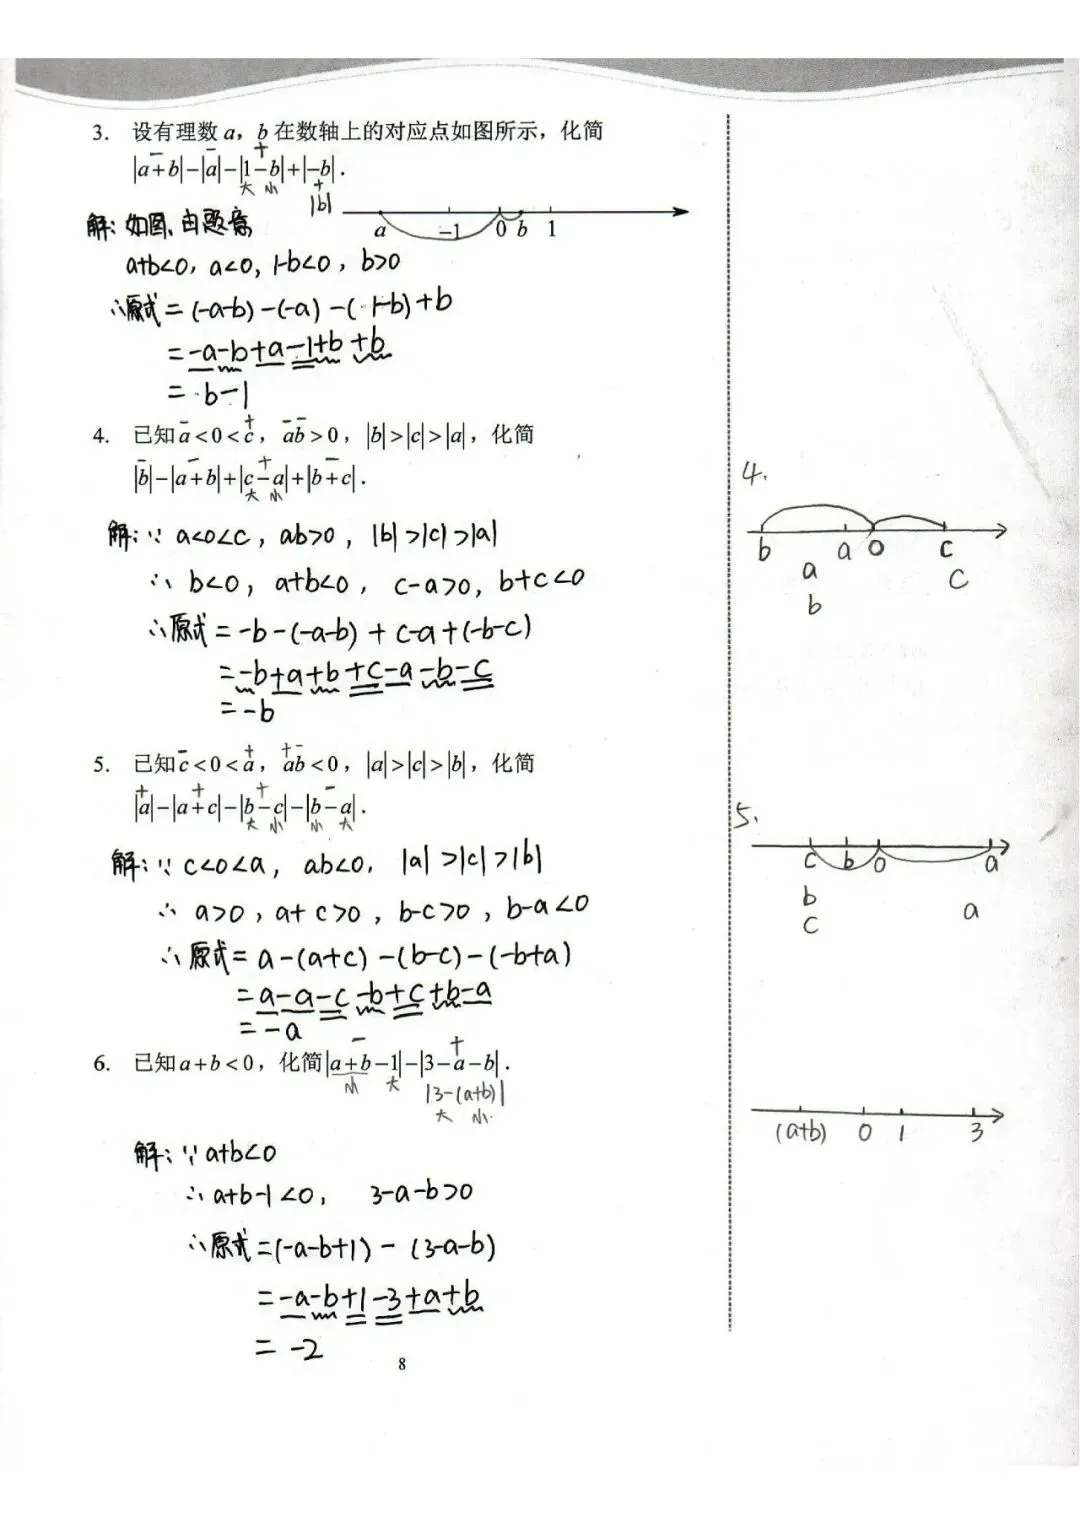 3. 设有理数 a，b 在数轴上的对应点如图所示，化简
|a+b|-|a|-|1-b|+|-b|.
- - + +
大 小
|b|
a -1 0 b 1
解：如图，由题意
a+b<0，a<0，1-b<0，b>0
∴原式=(-a-b)-(-a)-(1-b)+b
=-a-b+a-1+b+b
=b-1
4. 已知 a<0<c，ab>0，|b|>|c|>|a|，化简
- + - -
|b|-|a+b|+|c-a|+|b+c|.
- - + -
大 小
解：∵ a<0<c，ab>0，|b|>|c|>|a|
∴ b<0，a+b<0，c-a>0，b+c<0
∴原式=-b-(-a-b)+c-a+(-b-c)
=-b+a+b+c-a-b-c
=-b
5. 已知 c<0<a，ab<0，|a|>|c|>|b|，化简
- + + -
|a|-|a+c|-|b-c|-|b-a|.
+ + + -
大 小 小 大
解：∵ c<0<a，ab<0，|a|>|c|>|b|
∴ a>0，a+c>0，b-c>0，b-a<0
∴原式=a-(a+c)-(b-c)-(-b+a)
=a-a-c-b+c+b-a
=-a
6. 已知 a+b<0，化简|a+b-1|-|3-a-b|.
- +
小 大 |3-(a+b)|
大 小
解：∵ a+b<0
∴ a+b-1<0，3-a-b>0
∴原式=(-a-b+1)-(3-a-b)
=-a-b+1-3+a+b
=-2
8
4.
b a 0 c
a c
b
5.
c b 0 a
b a
c
(a+b) 0 1 3